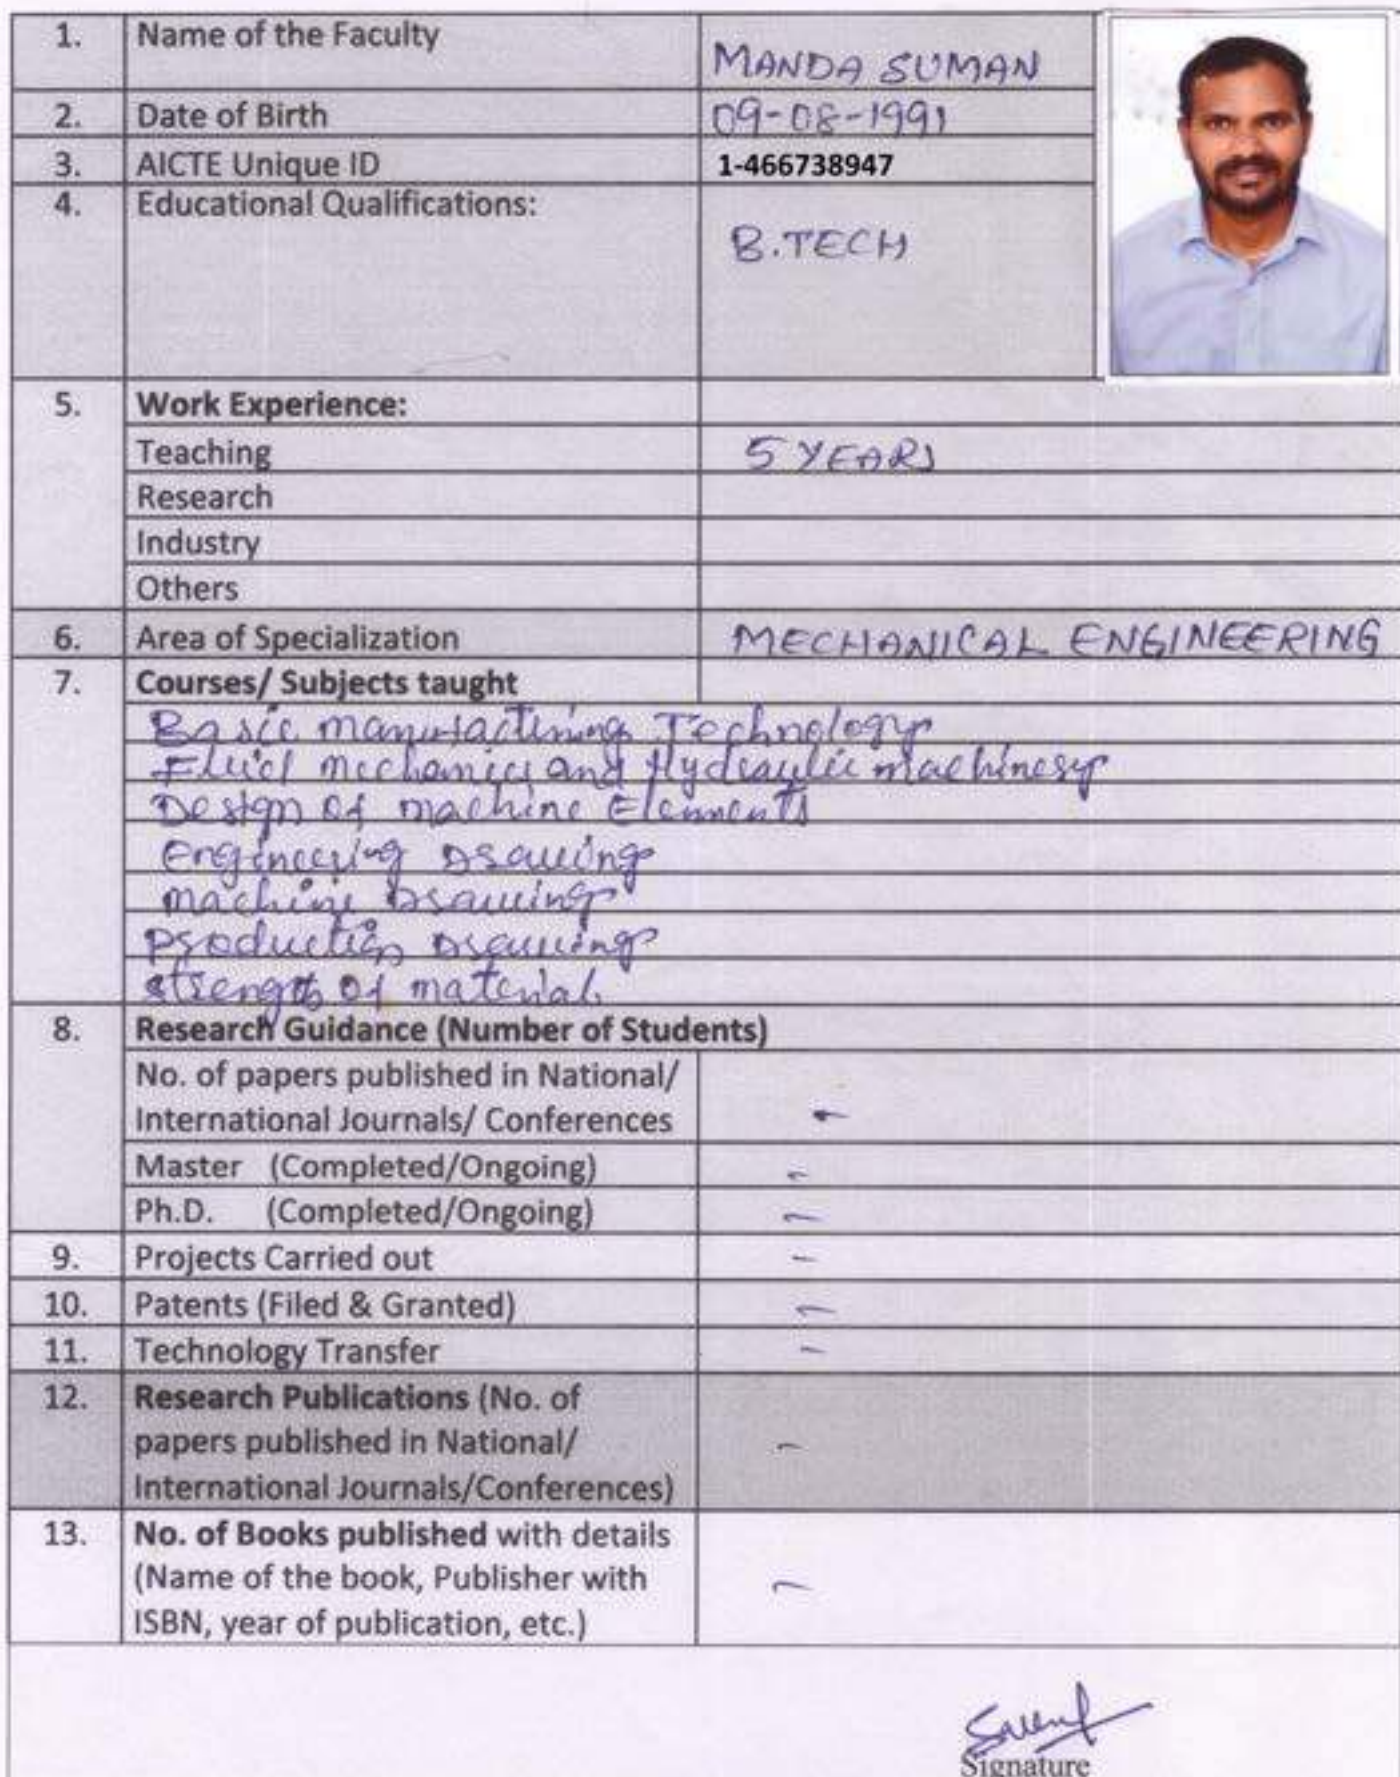 1. Name of the Faculty MANDA SUMAN
2. Date of Birth 09-08-1991
3. AICTE Unique ID 1-466738947
4. Educational Qualifications:
B.TECH
5. Work Experience:
Teaching 5 YEARS
Research
Industry
Others
6. Area of Specialization MECHANICAL ENGINEERING
7. Courses/ Subjects taught
Basic manufacturing Technology
Fluid mechanics and Hydraulic machinery
Design of machine Elements
Engineering Drawing
machine Drawing
production Drawing
strength of materials
8. Research Guidance (Number of Students)
No. of papers published in National/
International Journals/ Conferences -
Master (Completed/Ongoing) -
Ph.D. (Completed/Ongoing) -
9. Projects Carried out -
10. Patents (Filed & Granted) -
11. Technology Transfer -
12. Research Publications (No. of
papers published in National/ -
International Journals/Conferences)
13. No. of Books published with details
(Name of the book, Publisher with -
ISBN, year of publication, etc.)
Signature